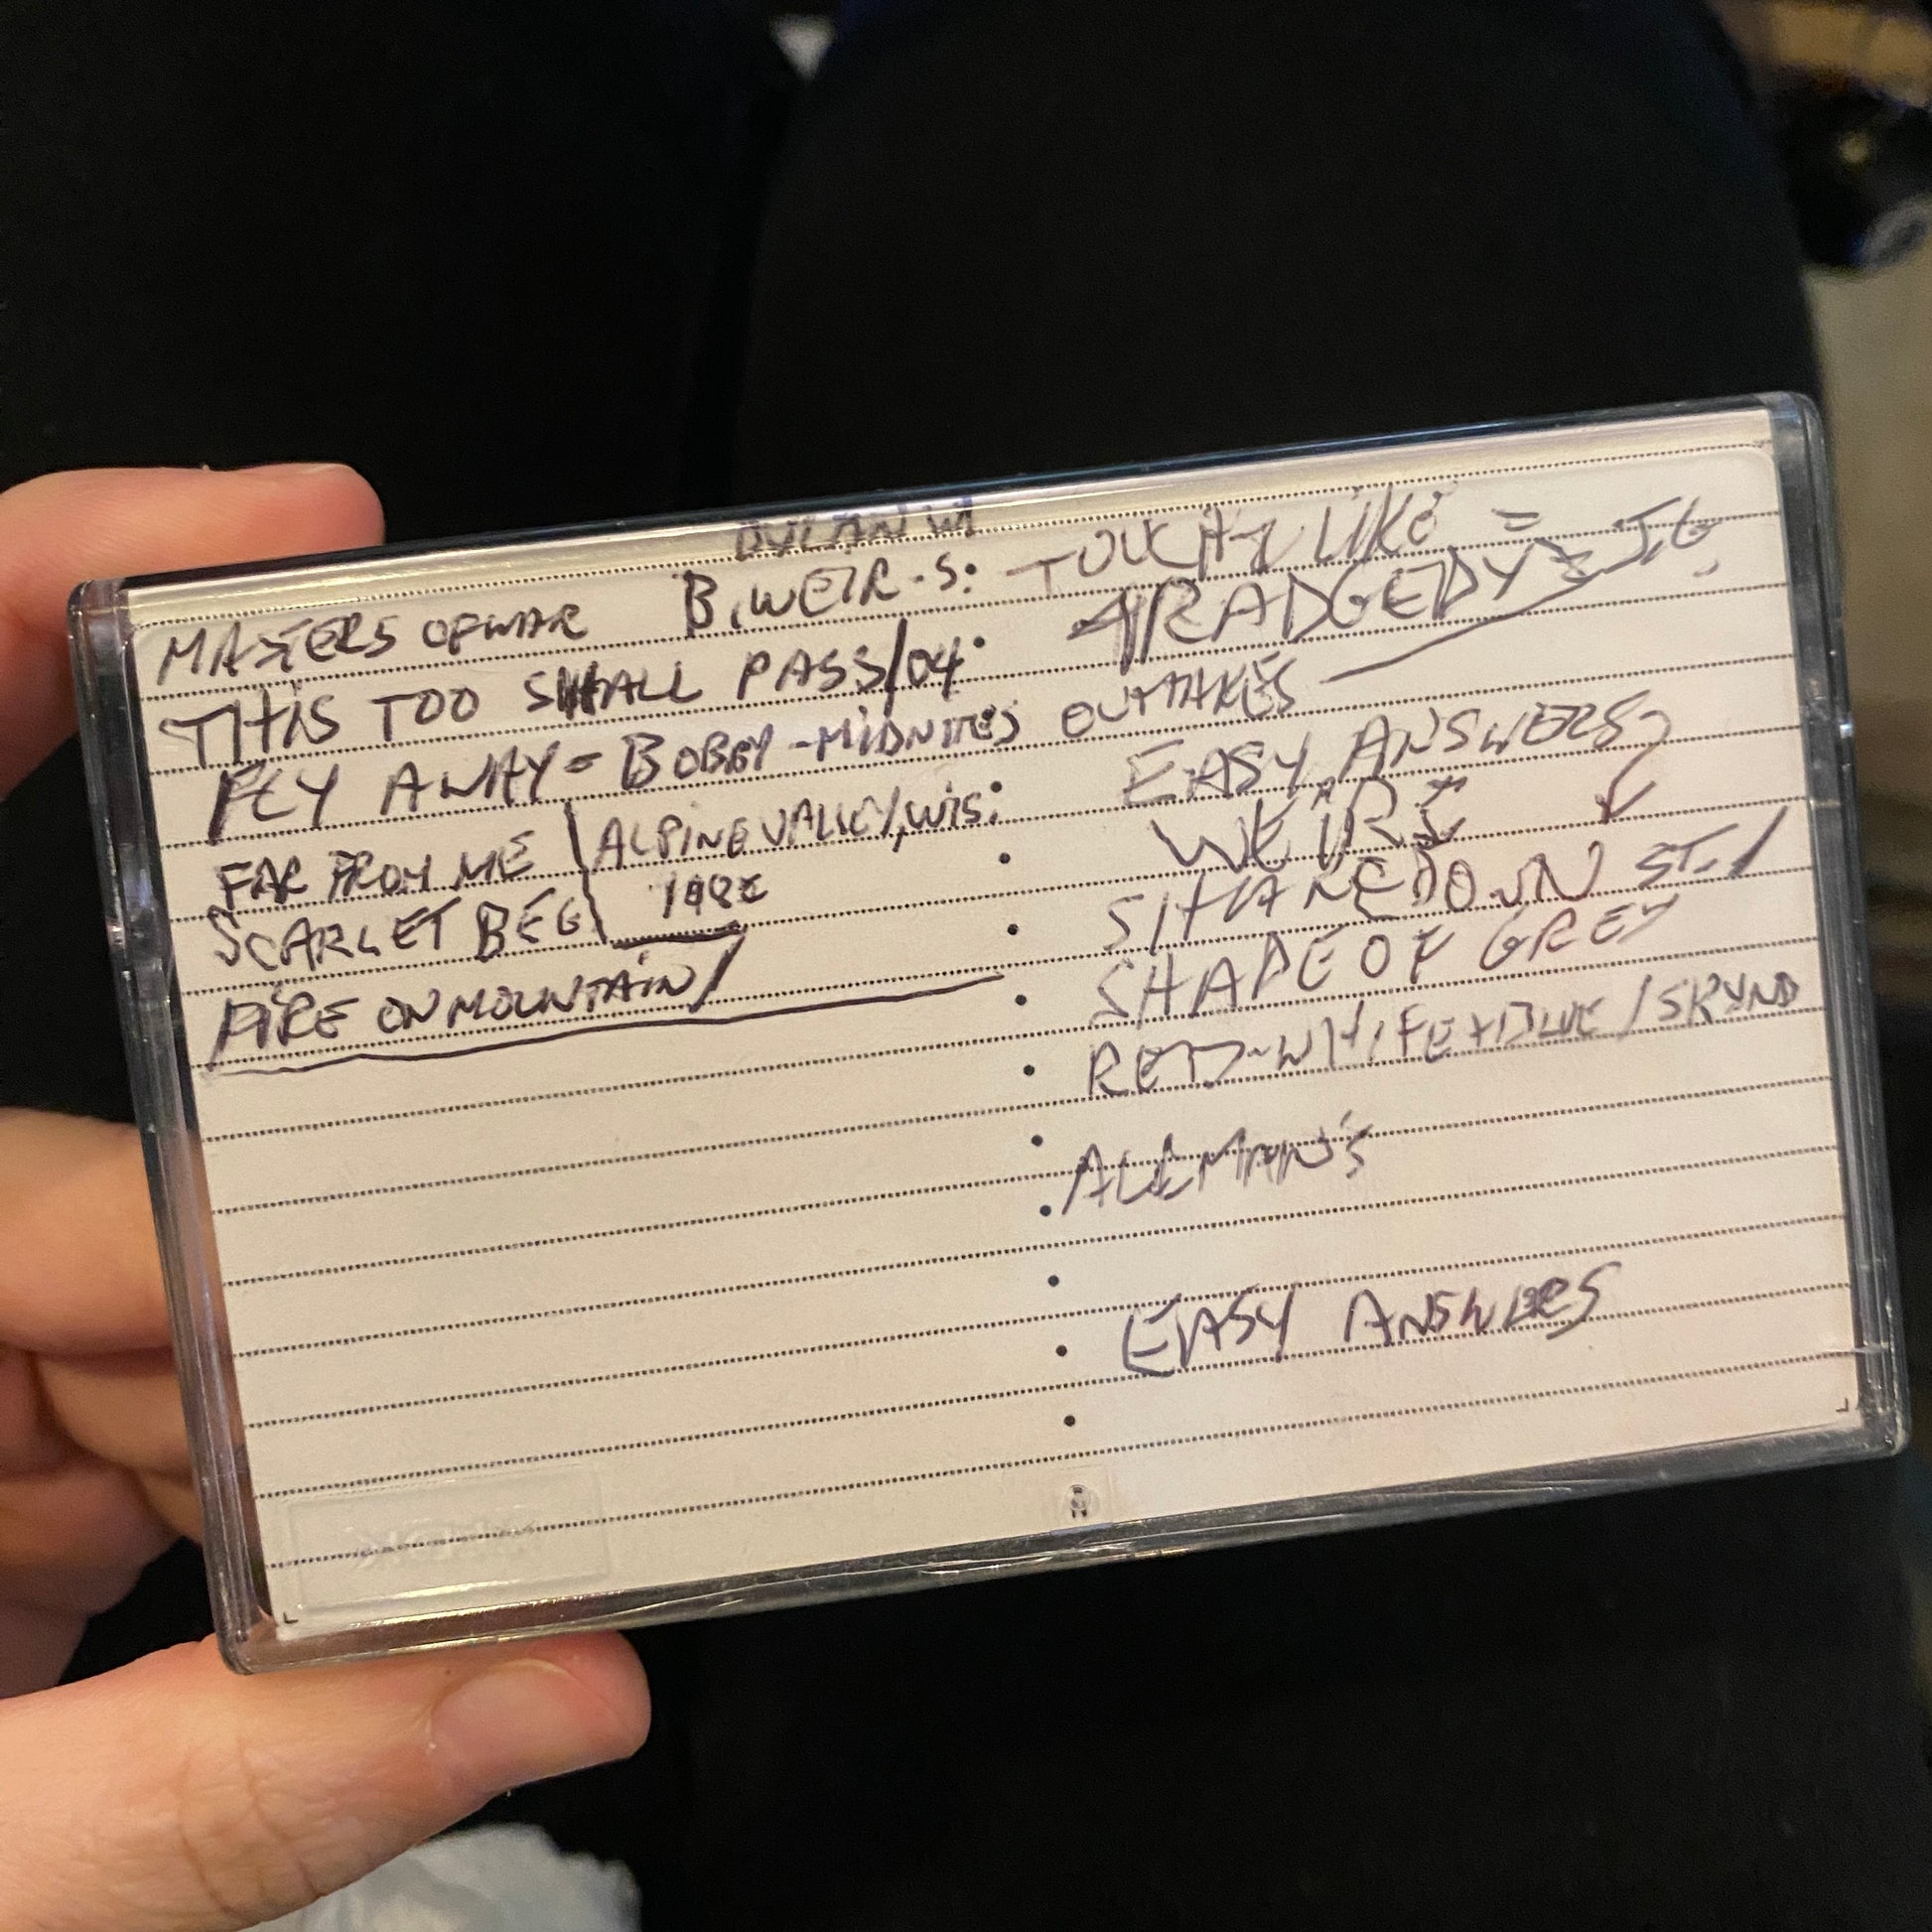 DYLAN W/
MASTERS OF WAR B. WEIR - S:
THIS TOO SHALL PASS/04
FLY AWAY = BOBBY - MIDNITES OUTTAKES
FAR FROM ME ALPINE VALLEY, WIS:
SCARLET BEG 198
FIRE ON MOUNTAIN/
TOUCHY LIKE =
RADGEDY J.G.
EASY ANSWERS
WEIR
SHAKEDOWN ST. /
SHADE OF GREY
RED-WHITE + BLUE / SKYND
ALLMAN'S
EASY ANSWERS